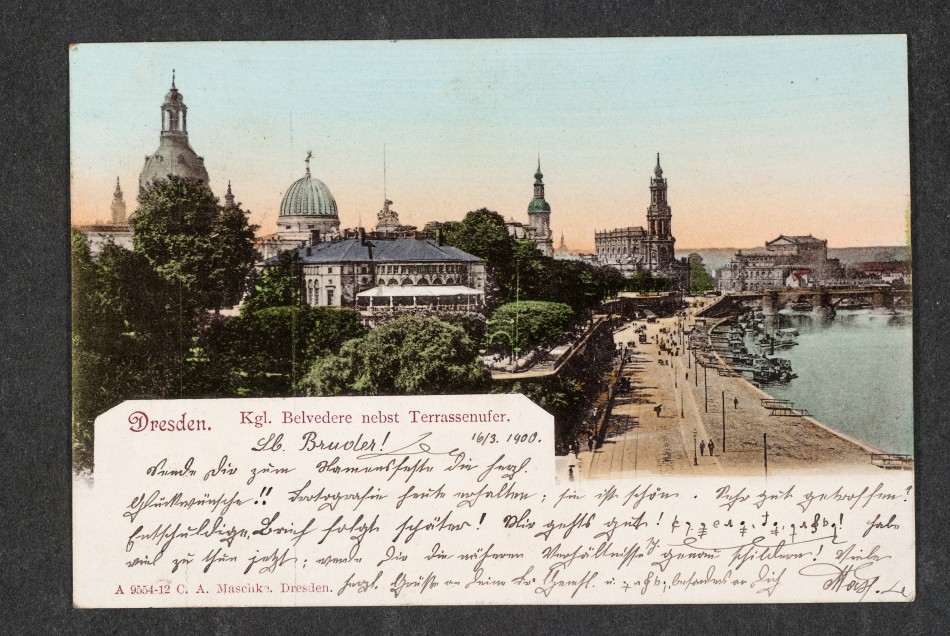 Dresden. Kgl. Belvedere nebst Terrassenufer.
Lb. Bruder! 16/3. 1900.
Sende Dir zum Namensfeste die herzl.
Glückwünsche!! Fotografie heute erhalten; sie ist schön. Sehr gut getroffen!
Entschuldige, Brief folgt später! Mir gehts gut! habe
viel zu thun jetzt; werde Dir die näheren Verhältnisse genau schildern! Viele
herzl. Grüsse an Deine u. besonders an Dich
A 9554-12 C. A. Maschke. Dresden.